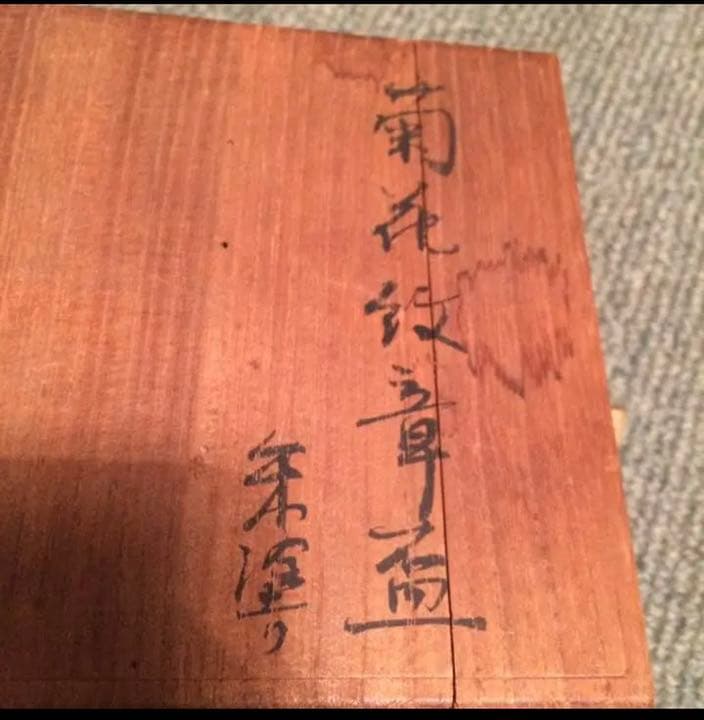 菊花紋章盃
朱塗り